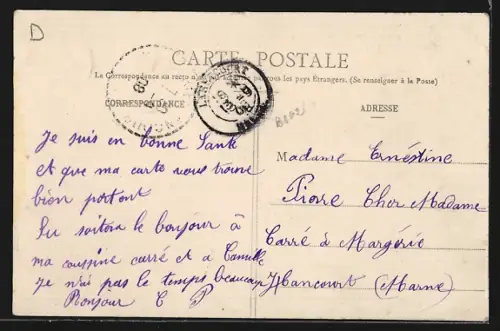 D
CARTE POSTALE
La Correspondance au recto n'est pas tous les pays Étrangers. (Se renseigner à la Poste)
CORRESPONDANCE
ADRESSE
Je suis en bonne Santé
et que ma carte vous trouve
bien portant
Tu soitera le bonjour à
ma coussine carré et à Camille
je n'ai pas le temps beaucoup
Bonjour C P
Madame Ernéstine
Pierre Cher Madame
Carré à Margérie
Hancourt (Marne)